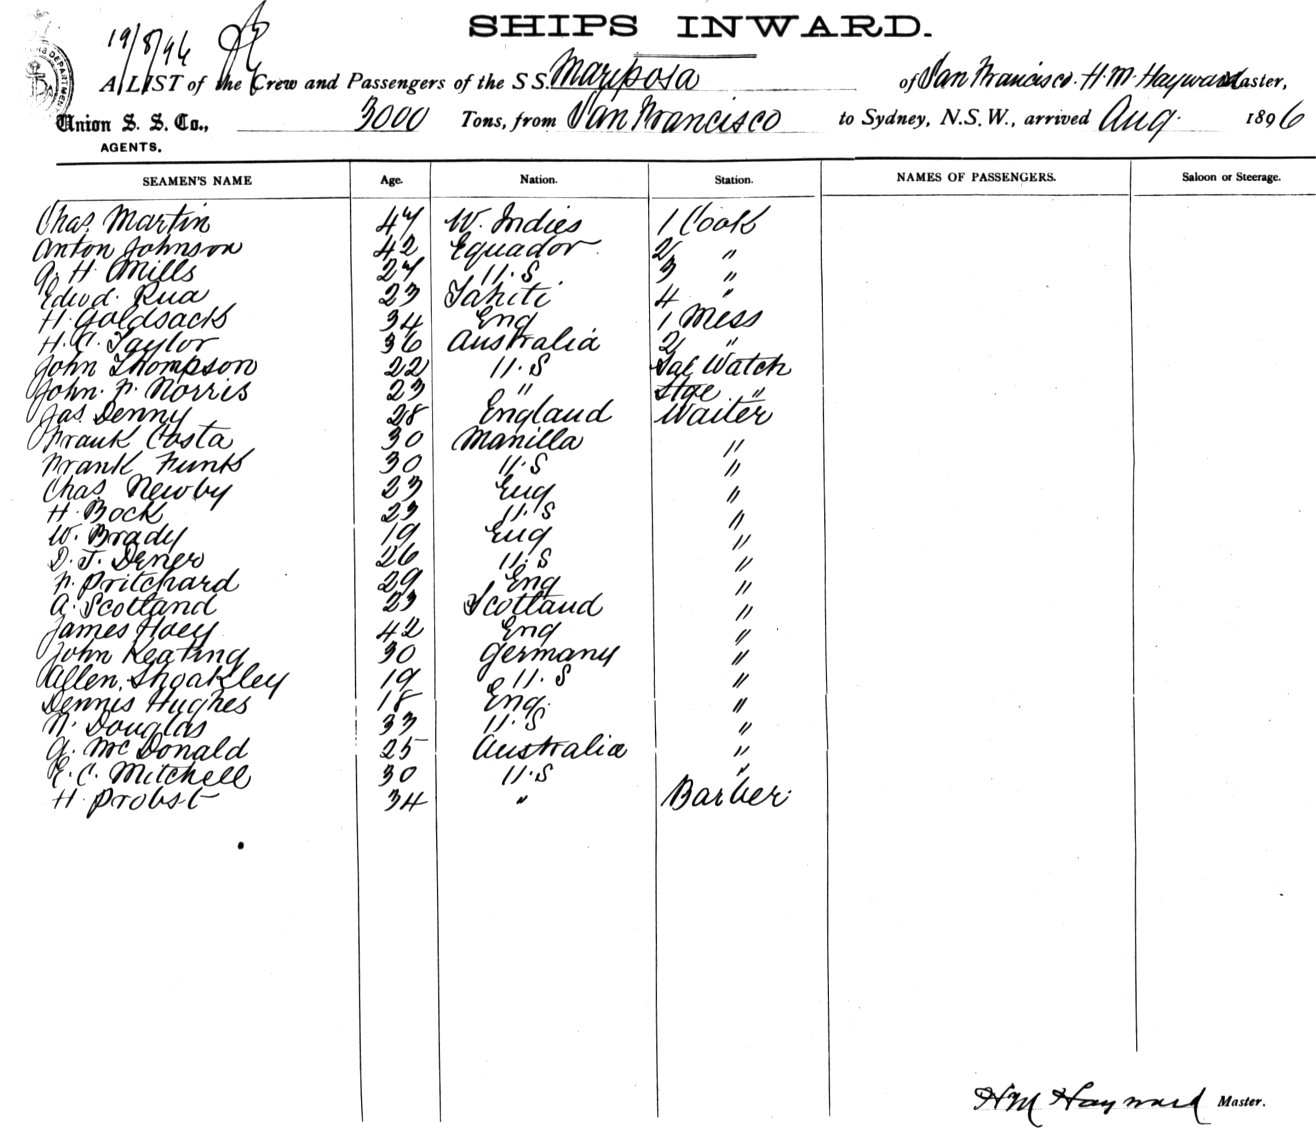 SHIPS INWARD.
19/8/96
A LIST of the Crew and Passengers of the S S. Mariposa of San Francisco. H. M. Hayward Master,
Union S. S. Co., 3000 Tons, from San Francisco to Sydney, N.S.W., arrived Aug. 1896
AGENTS.
SEAMEN'S NAME Age. Nation. Station. NAMES OF PASSENGERS. Saloon or Steerage.
Chas. Martin 47 W. Indies 1 Cook
Anton Johnson 42 Equador 2 "
H. Mills 27 U.S 3 "
Edwd. Rua 23 Tahiti 4 "
H. Goldsack 34 Eng 1 Mess
H. C. Taylor 36 Australia 2 "
John Thompson 22 U.S Sal Watch
John. F. Norris 23 " Stge "
Jas. Denny 28 England Waiter
Frank Costa 30 Manilla "
Frank Funk 30 U.S "
Chas. Newby 23 Eng "
H. Bock 23 U.S "
W. Brady 19 Eng "
D. J. Dener 26 U.S "
F. Pritchard 29 Eng "
A. Scotland 23 Scotland "
James Hoey 42 Eng "
John Keating 30 Germany "
Allen Shoakley 19 U.S "
Dennis Hughes 18 Eng. "
N. Douglas 33 U.S "
A. McDonald 25 Australia "
E. C. Mitchell 30 U.S "
H. Probst 34 " Barber.
HM Hayward Master.